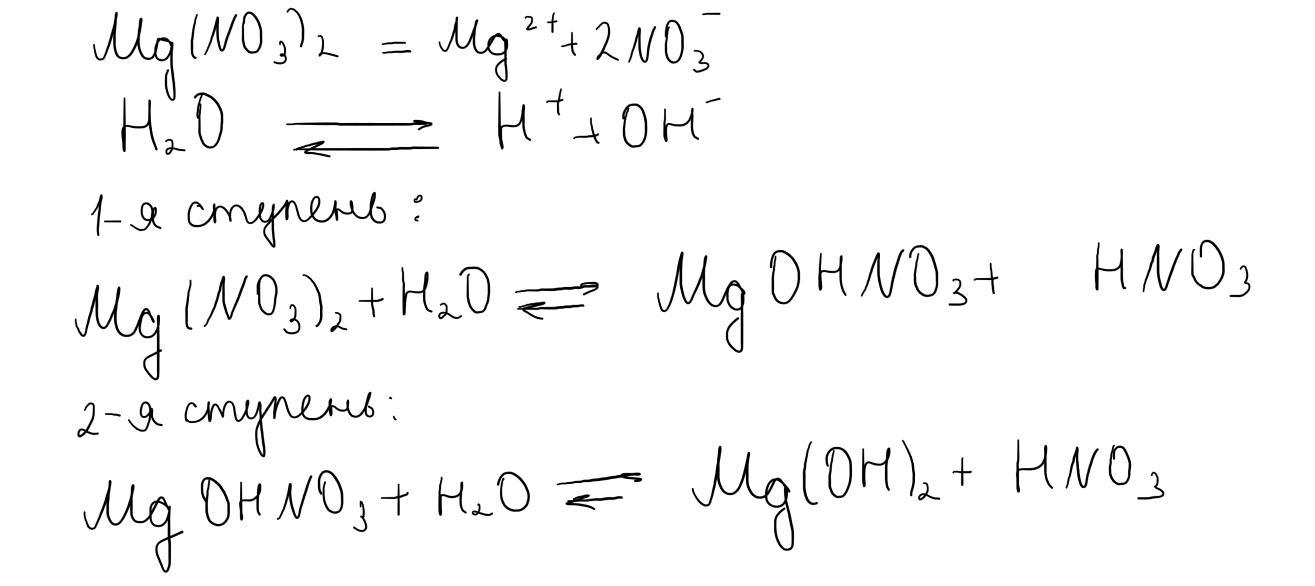 Mg(NO₃)₂ = Mg²⁺ + 2NO₃⁻
H₂O ⇌ H⁺ + OH⁻
1-я ступень:
Mg(NO₃)₂ + H₂O ⇌ MgOHNO₃ + HNO₃
2-я ступень:
MgOHNO₃ + H₂O ⇌ Mg(OH)₂ + HNO₃